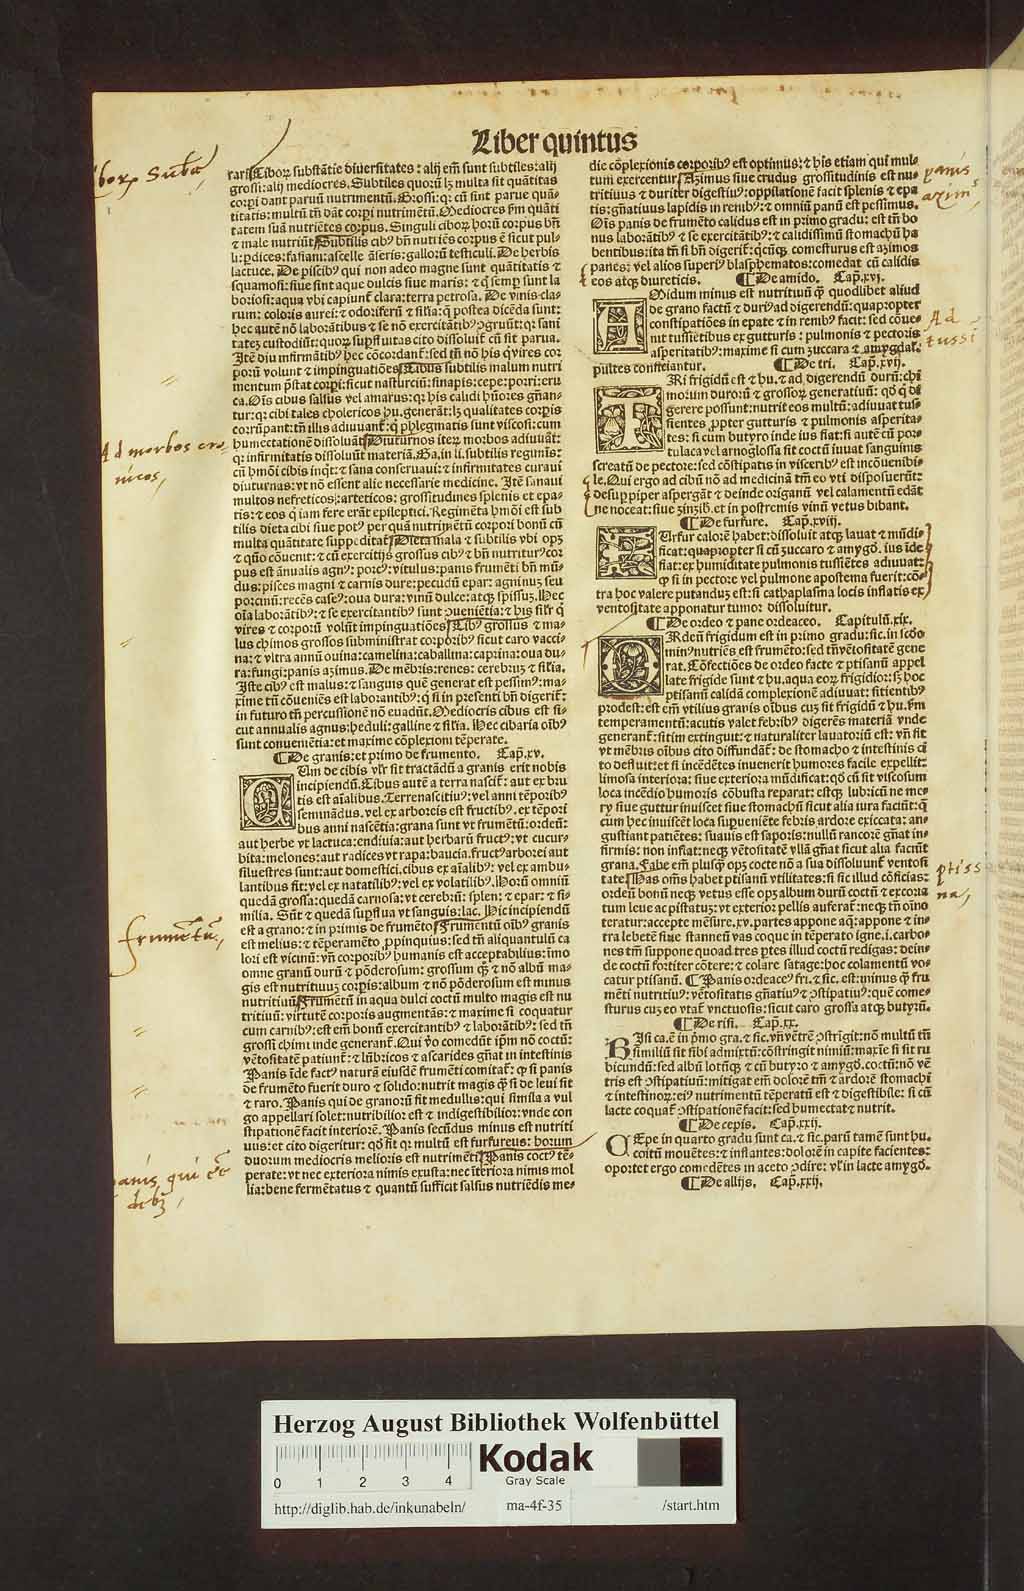 Liber quintus
rari. Ciborꝝ substãtie diuersitates: alij em̃ sunt subtiles: alij
grossi: alij mediocres. Subtiles quorũ lꝫ multa sit quãtitas
corpi dant paruũ nutrimentũ. Grossi: qꝛ cũ sint parue quã-
titatis: multũ tñ dãt corpi nutrimẽtũ. Mediocres ꝓm quãti
tatem suã nutriẽtes corpus. Singuli ciborꝝ horũ corpus bñ
⁊ male nutriũt. Subtilis cibꝰ bñ nutriẽs corpus ẽ sicut pul-
li: ꝑdices: fasiani: ascelle ãseris: gallorũ testiculi. De herbis
lactuce. De piscibꝰ qui non adeo magne sunt quãtitatis ⁊
squamosi: siue sint aque dulcis siue maris: ⁊ q̃ semꝑ sunt la
boriosi: aqua vbi capiunt̃ clara: terra petrosa. De vinis cla-
rum: coloris aurei: ⁊ odoriferũ ⁊ sil̃ia: q̃ postea dicẽda sunt:
hec autẽ nõ laborãtibus ⁊ se nõ exercitãtibꝰ ꝯgruũt: qꝛ sani
tateꝫ custodiũt: quorꝝ supfluitas cito dissoluit̃ cũ sit parua.
Itẽ diu infirmãtibꝰ hec cõcordant̃: sed tñ nõ his q̃ vires cor
porũ volunt ⁊ impinguatiões. Cibus subtilis malum nutri
mentum p̃stat corpi: sicut nasturciũ: sinapis: cepe: porri: eru
ca. Oĩs cibus salsus vel amarus: qꝛ his calidi hũores gñan-
tur: qꝛ cibi tales cholericos hũ. generãt: lꝫ qualitates corpis
corrũpant: tñ illis adiuuant̃: q̃ phlegmatis sunt viscosi: cum
humectationẽ dissoluãt. Diuturnos iteꝝ morbos adiuuãt:
qꝛ infirmitatis dissoluũt materiã. Ga. in li. subtilis regimĩs:
cũ hmõi cibis inqt: ⁊ sana conseruaui: ⁊ infirmitates curaui
diuturnas: vt nõ essent alie necessarie medicine. Itẽ sanaui
multos nefreticos: arteticos: grossitudines splenis ⁊ epa-
ris: ⁊ eos q̃ iam fere erãt epileptici. Regimẽta hmõi est sub
tilis dieta cibi siue potꝰ per quã nutrimẽtũ corpori bonũ cũ
multa quãtitate suppeditat̃. Dieta mala ⁊ subtilis vbi opꝫ
⁊ qño cõuenit: ⁊ cũ exercitijs grossus cibꝰ ⁊ bñ nutrit̃ꝰ cor
pus est ãnualis agnꝰ: porcꝰ: vitulus: panis frumẽti bñ mũ-
dus: pisces magni ⁊ carnis dure: pecudũ epar: agninuꝫ seu
porcinũ: recẽs caseꝰ: oua dura: vinũ dulce: atqꝫ spissuꝫ. Hec
oĩa laborãtibꝰ: ⁊ se exercitantibꝰ sunt ꝯueniẽtia: ⁊ his sil̃r q̃
vires ⁊ corporũ volũt impinguatiões. Cibꝰ grossus ⁊ ma-
lus chimos grossos subministrat corporibꝰ sicut caro vacci-
na: ⁊ vltra annũ ouina: camelina: caballina: caprina: oua du-
ra: fungi: panis azimus. De mẽbris: renes: cerebruꝫ ⁊ sil̃ia.
Iste cibꝰ est malus: ⁊ sanguis quẽ generat est pessimꝰ: ma-
xime tñ cõueniẽs est laborantibꝰ: q̃ si in presenti bñ digerit̃:
in futuro tñ percussionẽ nõ euadũt. Mediocris cibus est si-
cut annualis agnus: heduli: galline ⁊ sil̃ia. Hec cibaria oĩbꝰ
sunt conueniẽtia: et maxime cõplexioni tẽperate.
¶ De granis: et primo de frumento. Cap̃. xv.
CUm de cibis vl̃r sit tractãdũ a granis erit nobis
incipiendũ. Cibus autẽ a terra nascit̃: aut ex bru
tis est aĩalibus. Terre nascitiuꝰ: vel anni tẽporibꝰ
seminãdus. vel ex arboreis est fructibꝰ. ex tẽpori
bus anni nascẽtia: grana sunt vt frumẽtũ: ordeũ:
aut herbe vt lactuca: endiuia: aut herbarũ fructꝰ: vt cucur-
bita: melones: aut radices vt rapa: baucia. fructꝰ arboreí aut
siluestres sunt: aut domestici. cibus ex aĩalibꝰ: vel ex ambu-
lantibus fit: vel ex natatilibꝰ: vel ex volatilibꝰ. Horũ omniũ
quedã grossa: quedã carnosa: vt cerebrũ: splen: ⁊ epar: ⁊ si-
milia. Sũt ⁊ quedã supflua vt sanguis: lac. Hic incipiendũ
est a grano: ⁊ in primis de frumẽto. Frumentũ oĩbꝰ granis
est melius: ⁊ tẽperamẽto ꝓpinquius: sed tñ aliquantulũ ca
lori est vicinũ: vñ corporibꝰ humanis est acceptabilius: ĩmo
omne granũ durũ ⁊ põderosum: grossum qꝫ ⁊ nõ albũ ma-
gis est nutritiuuꝫ corpis: album ⁊ nõ põderosum est minus
nutritiuũ. Frumẽtũ in aqua dulci coctũ multo magis est nu
tritiuũ: virtutẽ corporis augmentãs: ⁊ maxime si coquatur
cum carnibꝰ: est em̃ bonũ exercitantibꝰ ⁊ laborãtibꝰ: sed tñ
grossi chimi inde generant̃. Qui vo comedũt ipm nõ coctũ:
vẽtositatẽ patiunt̃: ⁊ lũbricos ⁊ ascarides gñat in intestinis
Panis ĩde factꝰ naturã eiusdẽ frumẽti comitat̃: qꝫ si panis
de frumẽto fuerit duro ⁊ solido: nutrit magis qꝫ si de leui sit
⁊ raro. Panis qui de granorũ fit medullis: qui simila a vul
go appellari solet: nutribilior est ⁊ indigestibilior: vnde con
stipationẽ facit interiorẽ. Panis secũdus minus est nutriti
uus: et cito digeritur: qõ fit qꝛ multũ est furfureus: horum
duorum mediocris melioris est nutrimẽti. Panis coctꝰ tẽ-
perate: vt nec exteriora nimis exusta: nec ĩteriora nimis mol
lia: bene fermẽtatus ⁊ quantũ sufficit salsus nutriẽdis me-
die cõplexionis corporibꝰ est optimus: ⁊ his etiam qui mul-
tum exercentur. Azimus siue crudus grossitudinis est nu-
tritiuus ⁊ duriter digestiuꝰ: oppilationẽ facit splenis ⁊ epa
tis: gñatiuus lapidis in renibꝰ: ⁊ omniũ panũ est pessimus.
Oĩs panis de frumẽto calidus est in primo gradu: est tñ bo
nus laborãtibꝰ ⁊ se exercitãtibꝰ: ⁊ calidissimũ stomachũ ha
bentibus: ita tñ si bñ digerit̃: q̃cũqꝫ comesturus est azimos
panes: vel alios superiꝰ blasphematos: comedat cũ calidis
⁊ eos atqꝫ diureticis. ¶ De amido. Cap̃. xvi.
AMidum minus est nutritiuũ qꝫ quodlibet aliud
de grano factũ ⁊ duriꝰ ad digerendũ: quapropter
constipatiões in epate ⁊ in renibꝰ facit: sed cõue-
nit tussiẽtibus ex gutturis: pulmonis ⁊ pectoris
asperitatibꝰ: maxime si cum zuccara ⁊ amygdal̃.
pultes conficiantur. ¶ De tri. Cap̃. xvii.
TRi frigidũ est ⁊ hu. ⁊ ad digerendũ durũ: chi
morum durorũ ⁊ grossorꝝ generatiuũ: qõ q̃ di
gerere possunt: nutrit eos multũ: adiuuat tus-
sientes ꝓpter gutturis ⁊ pulmonis asperita-
tes: si cum butyro inde ius fiat: si autẽ cũ por-
tulaca vel arnoglossa sit coctũ iuuat sanguinis
screatũ de pectore: sed cõstipatis in visceribꝰ est incõuenibi-
le. Qui ergo ad cibũ nõ ad medicinã tñ eo vti disposuerũt:
desup piper aspergãt ⁊ deinde origanũ vel calamentũ edãt
ne noceat: siue zinzib̃. et in postremis vinũ vetus bibant.
¶ De furfure. Cap̃. xviii.
FUrfur calorẽ habet: dissoluit atqꝫ lauat ⁊ mũdi-
ficat: quapropter si cũ zuccaro ⁊ amygd̃. ius ĩde
fiat: ex humiditate pulmonis tussiẽtes adiuuat:
qꝫ si in pectore vel pulmone apostema fuerit: cõ-
tra hoc valere putanduꝫ est: si cathaplasma locis inflatis ex
ventositate apponatur tumor dissoluitur.
¶ De ordeo ⁊ pane ordeaceo. Capitulũ. xix.
ORdeũ frigidum est in primo gradu: sic. in scõo
minꝰ nutriẽs est frumẽto: sed tñ vẽtositatẽ gene
rat. Cõfectiões de ordeo facte ⁊ ptisanũ appel
late frigide sunt ⁊ hu. aqua eorꝝ frigidior: sꝫ hoc
ptisanũ calidã complexionẽ adiuuat: sitientibꝰ
prodest: est em̃ vtilius granis oĩbus cuꝫ sit frigidũ ⁊ hu. ꝓm
temperamentũ: acutis valet febribꝰ digerẽs materiã vnde
generant̃: sitim extinguit: ⁊ naturaliter lauatoriũ est: vñ fit
vt mẽbris oĩbus cito diffundat̃: de stomacho ⁊ intestinis ci
to defluit: et si incẽdẽtes inuenerit humores facile expellit:
limosa interiora: siue exteriora mũdificat: qõ cũ sit viscosum
loca incẽdio humoris cõbusta reparat: estqꝫ lubricũ ne me-
ry siue guttur inuiscet siue stomachũ sicut alia iura faciũt: q̃
cum hec inuiscẽt loca supueniẽte febris ardore exiccata: an-
gustiant patiẽtes: suauis est saporis: nullũ rancorẽ gñat in-
firmis: non inflat: neqꝫ vẽtositatẽ vllã gñat sicut alia faciũt
grana. Fabe em̃ plusqꝫ opꝫ cocte nõ a sua dissoluunt̃ ventosi
tate. Has om̃s habet ptisanũ vtilitates: si sic illud cõficias:
ordeũ bonũ neqꝫ vetus esse opꝫ album durũ coctũ ⁊ excora
tum leue ac pistatuꝫ: vt exterior pellis auferat̃: neqꝫ tñ oĩno
teratur: accepte mẽsure. xv. partes appone aq̃: appone ⁊ in-
tra lebetẽ siue stanneũ vas coque in tẽperato igne. i. carbo-
nes tm̃ suppone quoad tres ꝑtes illud coctũ redigas: dein-
de coctũ fortiter cõtere: ⁊ colare satage: hoc colamentũ vo-
catur ptisanũ. ¶ Panis ordeaceꝰ fri. ⁊ sic. est: minus qꝫ fru
mẽti nutritiuꝰ: vẽtositatis gñatiuꝰ ⁊ ꝯstipatiuꝰ: quẽ come-
sturus cuꝫ eo vtat̃ vnctuosis: sicut caro grossa atqꝫ butyrũ.
¶ De risi. Cap̃. xx.
RIsi ca. ẽ in ṕmo gra. ⁊ sic. vñ vẽtrẽ ꝯstrĩgit: nõ multũ tñ
si nimiũ sit sibi admixtũ: cõstringit nimiũ: maxĩe si sit ru
bicundũ: sed albũ lotũqꝫ ⁊ cũ butyro ⁊ amygd̃. coctũ: nõ vẽ
tris est ꝯstipatiuũ: mitigat em̃ dolorẽ tm̃ ⁊ ardorẽ stomachi
⁊ intestinorꝝ: eiꝰ nutrimentũ tẽperatũ est ⁊ digestibile: si cũ
lacte coquat̃ ꝯstipationẽ facit: sed humectat ⁊ nutrit.
¶ De cepis. Cap̃. xxi.
CEpe in quarto gradu sunt ca. ⁊ sic. parũ tamẽ sunt hu.
coitũ mouẽtes: ⁊ inflantes: dolorẽ in capite facientes:
oportet ergo comedẽtes in aceto ꝯdire: vl̃ in lacte amygd̃.
¶ De allijs. Cap̃. xxii.
Ad morbos cro
nicos,
frumẽtũ,
panis
azim9
Ad
tussi
ptissa
na,
Herzog August Bibliothek Wolfenbüttel
0 1 2 3 4
Kodak
Gray Scale
http://diglib.hab.de/inkunabeln/ ma-4f-35 /start.htm